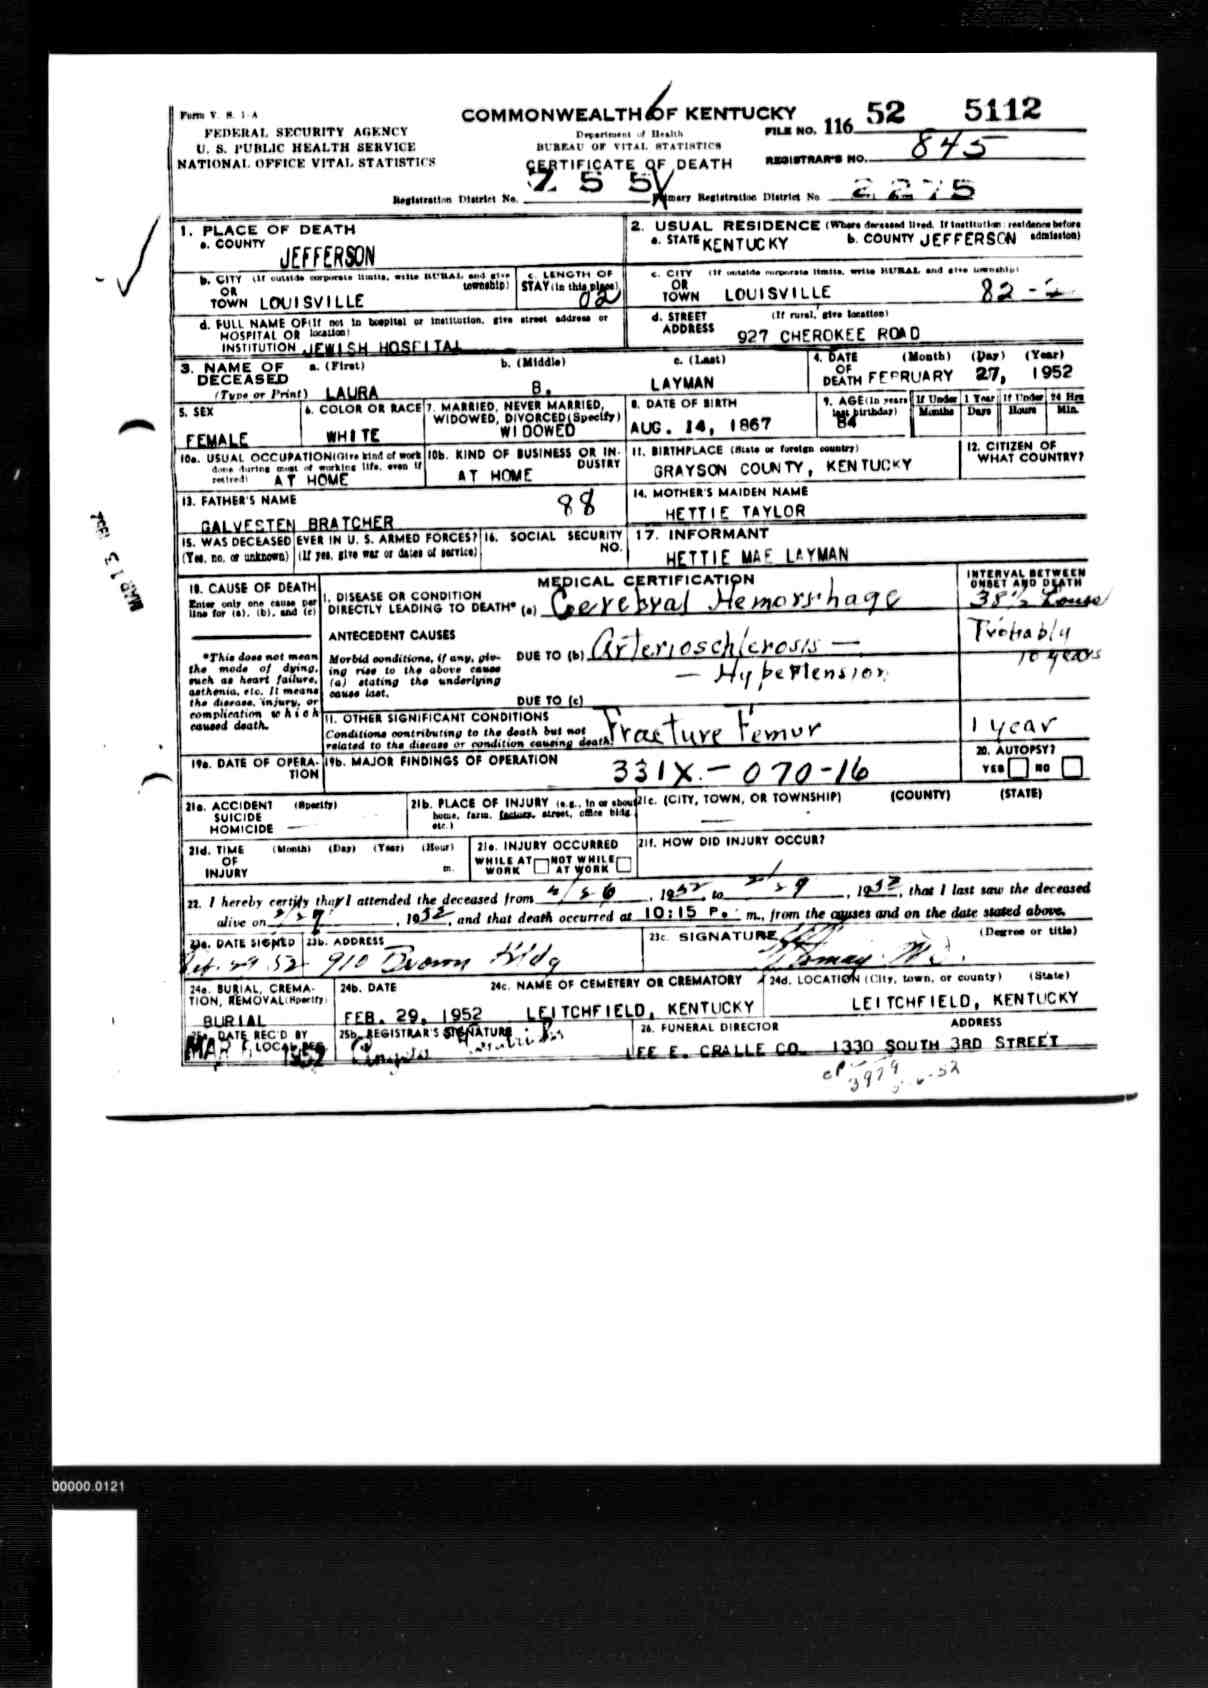 Form V. S. 1-A
FEDERAL SECURITY AGENCY
U. S. PUBLIC HEALTH SERVICE
NATIONAL OFFICE VITAL STATISTICS
COMMONWEALTH OF KENTUCKY
Department of Health
BUREAU OF VITAL STATISTICS
CERTIFICATE OF DEATH
FILE NO. 116 52 5112
REGISTRAR'S NO. 845
Registration District No. 755
Primary Registration District No. 2275
1. PLACE OF DEATH
a. COUNTY JEFFERSON
2. USUAL RESIDENCE (Where deceased lived. If institution: residence before admission)
a. STATE KENTUCKY b. COUNTY JEFFERSON
b. CITY (If outside corporate limits, write RURAL and give township)
OR
TOWN LOUISVILLE
c. LENGTH OF STAY (in this place) 02
c. CITY (If outside corporate limits, write RURAL and give township)
OR
TOWN LOUISVILLE 82-2
d. FULL NAME OF (If not in hospital or institution, give street address or location)
HOSPITAL OR
INSTITUTION JEWISH HOSPITAL
d. STREET ADDRESS (If rural, give location)
927 CHEROKEE ROAD
3. NAME OF DECEASED (Type or Print)
a. (First) LAURA
b. (Middle) B.
c. (Last) LAYMAN
4. DATE OF DEATH (Month) (Day) (Year)
FEBRUARY 27, 1952
5. SEX
FEMALE
6. COLOR OR RACE
WHITE
7. MARRIED, NEVER MARRIED, WIDOWED, DIVORCED (Specify)
WIDOWED
8. DATE OF BIRTH
AUG. 14, 1867
9. AGE (In years last birthday) 84
If Under 1 Year Months Days
If Under 24 Hrs Hours Min.
10a. USUAL OCCUPATION (Give kind of work done during most of working life, even if retired)
AT HOME
10b. KIND OF BUSINESS OR INDUSTRY
AT HOME
11. BIRTHPLACE (State or foreign country)
GRAYSON COUNTY, KENTUCKY
12. CITIZEN OF WHAT COUNTRY?
13. FATHER'S NAME
GALVESTEN BRATCHER
88
14. MOTHER'S MAIDEN NAME
HETTIE TAYLOR
15. WAS DECEASED EVER IN U. S. ARMED FORCES?
(Yes, no, or unknown) (If yes, give war or dates of service)
16. SOCIAL SECURITY NO.
17. INFORMANT
HETTIE MAE LAYMAN
18. CAUSE OF DEATH
Enter only one cause per line for (a), (b), and (c)
*This does not mean the mode of dying, such as heart failure, asthenia, etc. It means the disease, injury, or complication which caused death.
MEDICAL CERTIFICATION
INTERVAL BETWEEN ONSET AND DEATH
I. DISEASE OR CONDITION
DIRECTLY LEADING TO DEATH* (a) Cerebral Hemorrhage
38½ Hours
ANTECEDENT CAUSES
Morbid conditions, if any, giving rise to the above cause (a) stating the underlying cause last.
DUE TO (b) Arterioschlerosis —
— Hypertension
Probably
10 years
DUE TO (c)
II. OTHER SIGNIFICANT CONDITIONS
Conditions contributing to the death but not related to the disease or condition causing death.
Fracture Femur
1 year
19a. DATE OF OPERATION
19b. MAJOR FINDINGS OF OPERATION
331X.-070-16
20. AUTOPSY?
YES NO
21a. ACCIDENT (Specify)
SUICIDE
HOMICIDE
21b. PLACE OF INJURY (e.g., in or about home, farm, factory, street, office bldg etc.)
21c. (CITY, TOWN, OR TOWNSHIP) (COUNTY) (STATE)
21d. TIME OF INJURY (Month) (Day) (Year) (Hour) m.
21e. INJURY OCCURRED
WHILE AT WORK NOT WHILE AT WORK
21f. HOW DID INJURY OCCUR?
22. I hereby certify that I attended the deceased from 2/26, 1952, to 2/29, 1952, that I last saw the deceased
alive on 2/29, 1952, and that death occurred at 10:15 P. m., from the causes and on the date stated above.
23a. DATE SIGNED
Feb. 29. 52
23b. ADDRESS
910 Brown Bldg
23c. SIGNATURE (Degree or title)
M.D.
24a. BURIAL, CREMATION, REMOVAL (Specify)
BURIAL
24b. DATE
FEB. 29, 1952
24c. NAME OF CEMETERY OR CREMATORY
LEITCHFIELD, KENTUCKY
24d. LOCATION (City, town, or county) (State)
LEITCHFIELD, KENTUCKY
25a. DATE REC'D BY LOCAL REG.
MAR 1952
25b. REGISTRAR'S SIGNATURE
26. FUNERAL DIRECTOR ADDRESS
LEE E. CRALLE CO. 1330 SOUTH 3RD STREET
3979
00000.0121